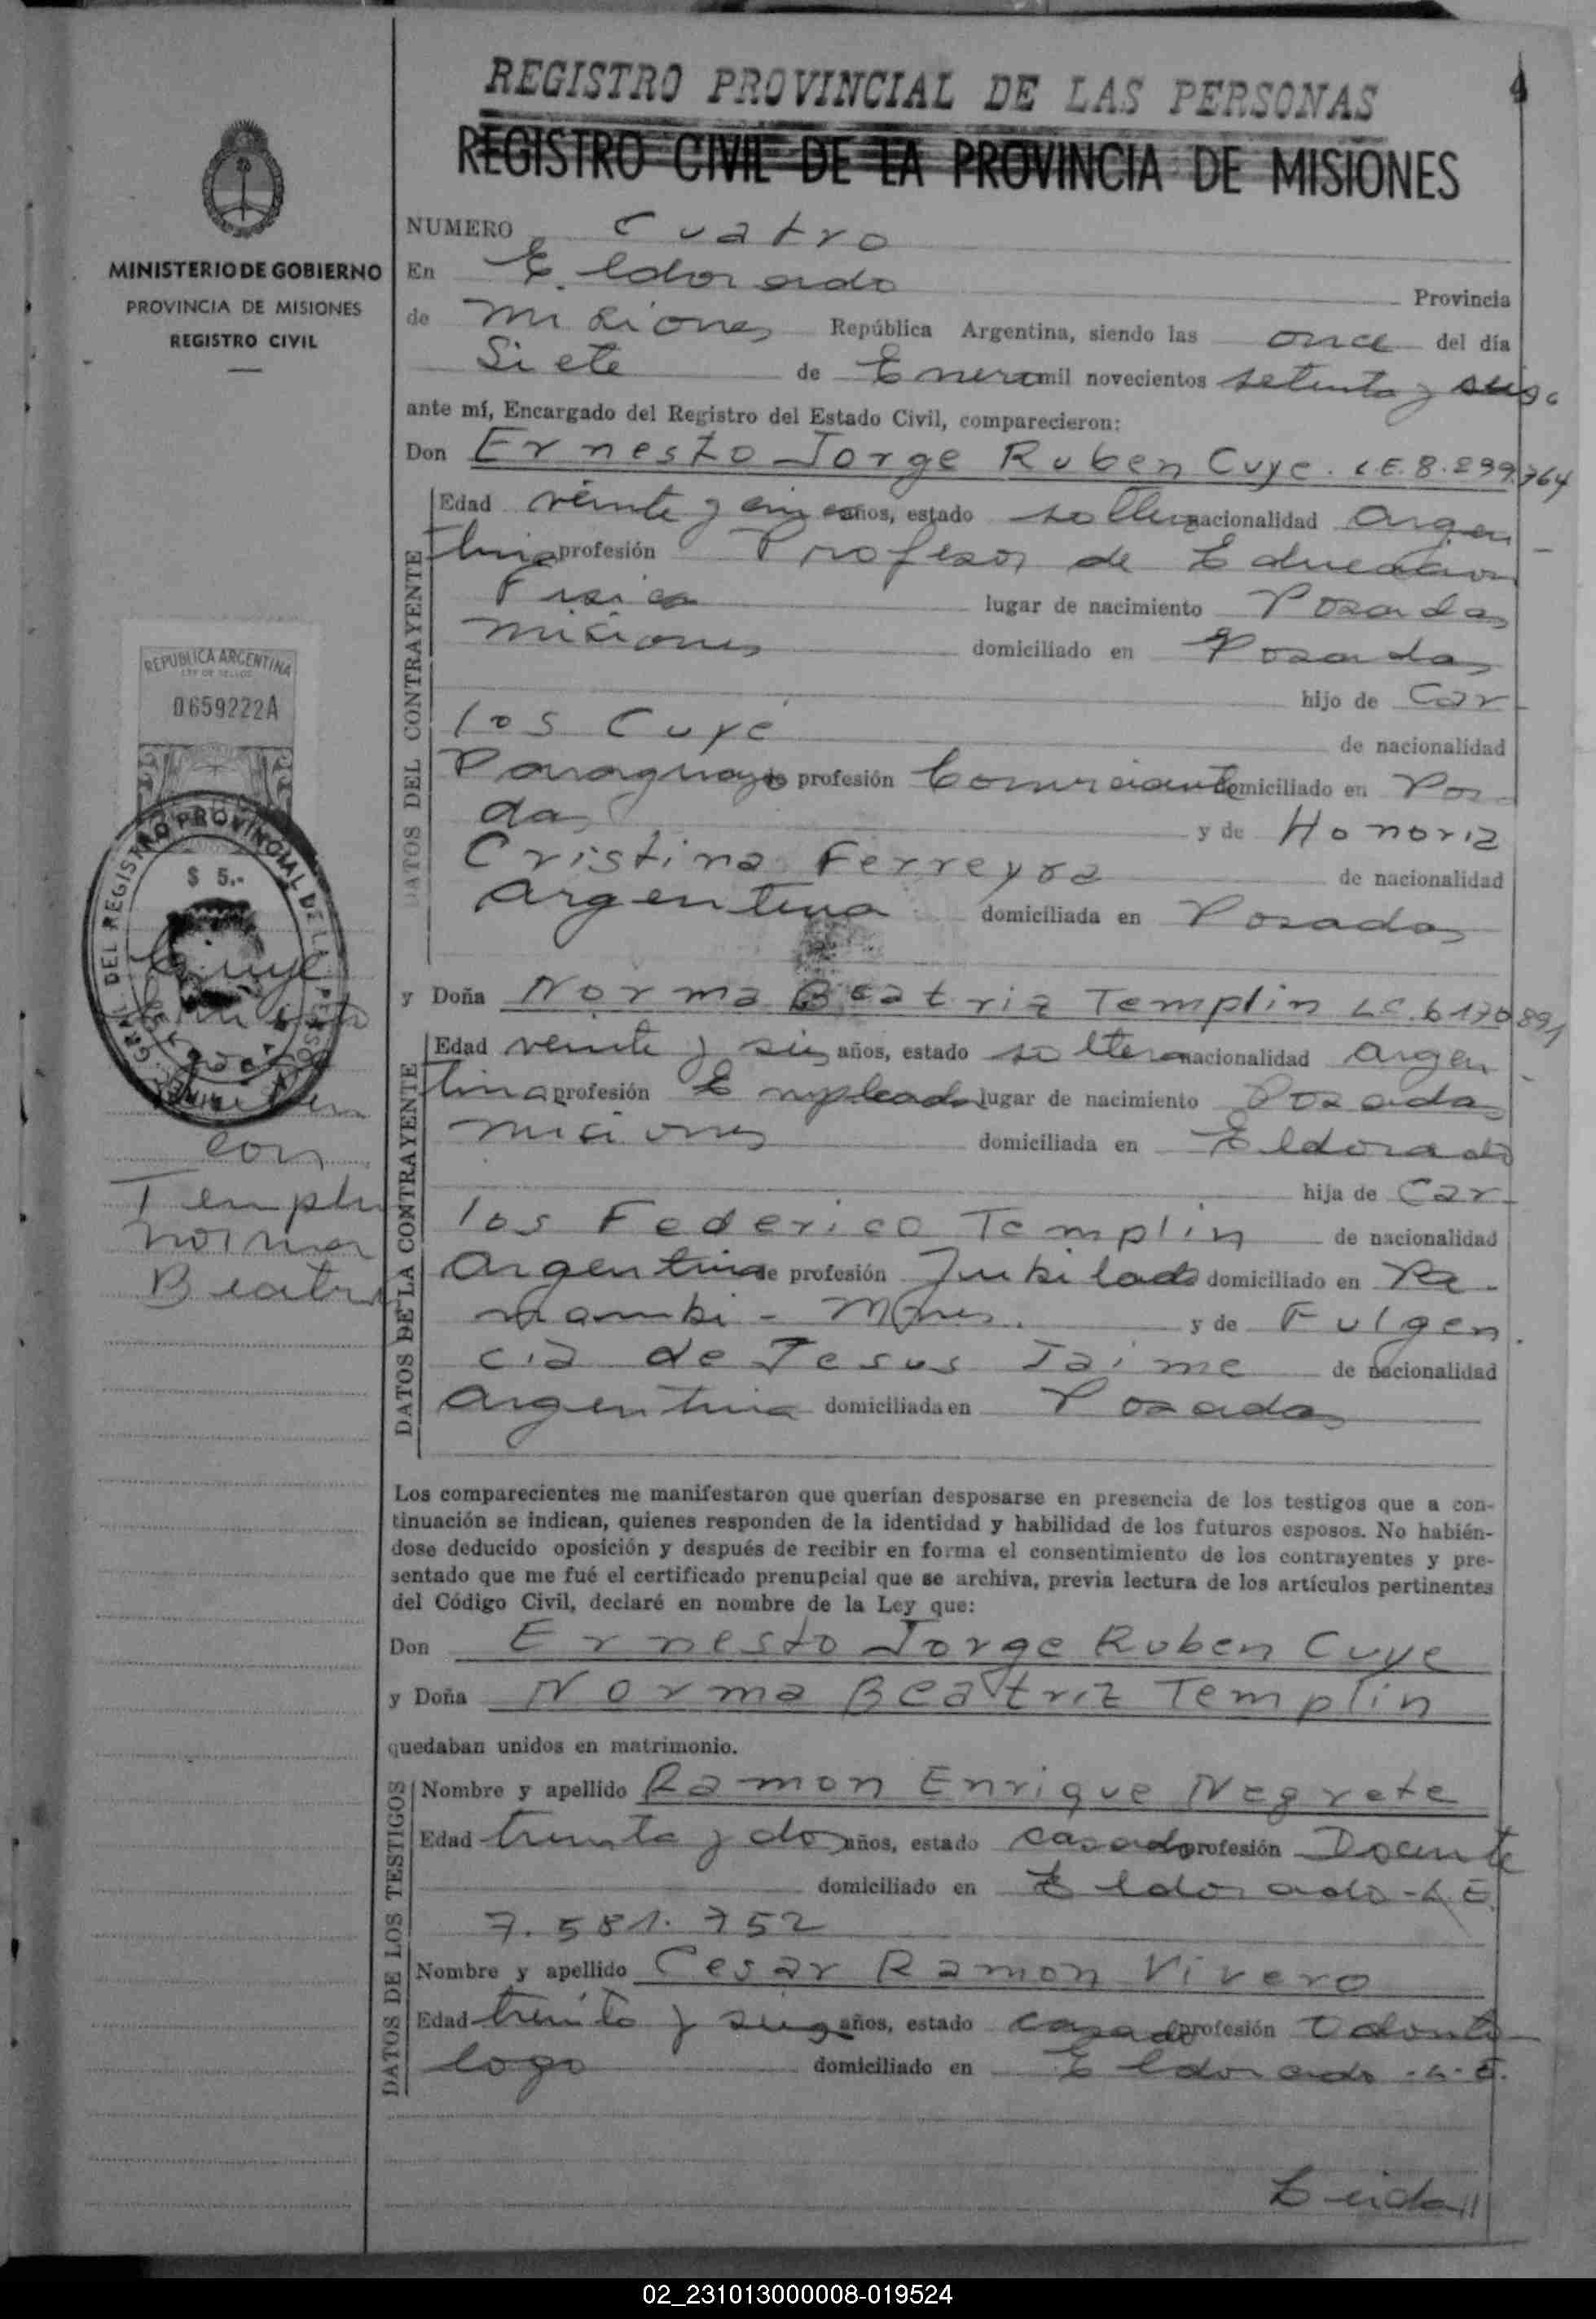 REGISTRO PROVINCIAL DE LAS PERSONAS
4
REGISTRO CIVIL DE LA PROVINCIA DE MISIONES
MINISTERIO DE GOBIERNO
PROVINCIA DE MISIONES
REGISTRO CIVIL
REPUBLICA ARGENTINA
LEY DE SELLOS
0659222A
$ 5.-
Cuyé
Ernesto
con
Templin
Norma
Beatriz
NUMERO Cuatro
En Eldorado Provincia
de Misiones República Argentina, siendo las once del día
Siete de Enero mil novecientos setenta y seis
ante mí, Encargado del Registro del Estado Civil, comparecieron:
Don Ernesto Jorge Ruben Cuye. L.E. 8.299.764
DATOS DEL CONTRAYENTE
Edad veinte y cinco años, estado soltero nacionalidad Argen
tina profesión Profesor de Educacion
Fisica lugar de nacimiento Posadas
Misiones domiciliado en Posadas
hijo de Car
los Cuyé de nacionalidad
Paraguayo de profesión Comerciante domiciliado en Posa
das y de Honoria
Cristina Ferreyra de nacionalidad
Argentina domiciliada en Posadas
y Doña Norma Beatriz Templin L.C. 6170891
DATOS DE LA CONTRAYENTE
Edad veinte y seis años, estado soltera nacionalidad Argen
tina profesión Empleada lugar de nacimiento Posadas
Misiones domiciliada en Eldorado
hija de Car
los Federico Templin de nacionalidad
Argentina de profesión Jubilado domiciliado en Pa
nambi - Mnes. y de Fulgen
cia de Jesus Jaime de nacionalidad
Argentina domiciliada en Posadas
Los comparecientes me manifestaron que querían desposarse en presencia de los testigos que a con-
tinuación se indican, quienes responden de la identidad y habilidad de los futuros esposos. No habién-
dose deducido oposición y después de recibir en forma el consentimiento de los contrayentes y pre-
sentado que me fué el certificado prenupcial que se archiva, previa lectura de los artículos pertinentes
del Código Civil, declaré en nombre de la Ley que:
Don Ernesto Jorge Ruben Cuye
y Doña Norma Beatriz Templin
quedaban unidos en matrimonio.
DATOS DE LOS TESTIGOS
Nombre y apellido Ramon Enrique Negrete
Edad treinta y dos años, estado casado profesión Docente
domiciliado en Eldorado - L.E.
7.581.752
Nombre y apellido Cesar Ramon Vivero
Edad treinta y seis años, estado casado profesión Odonto
logo domiciliado en Eldorado - L.E.
Leida//
02_231013000008-019524